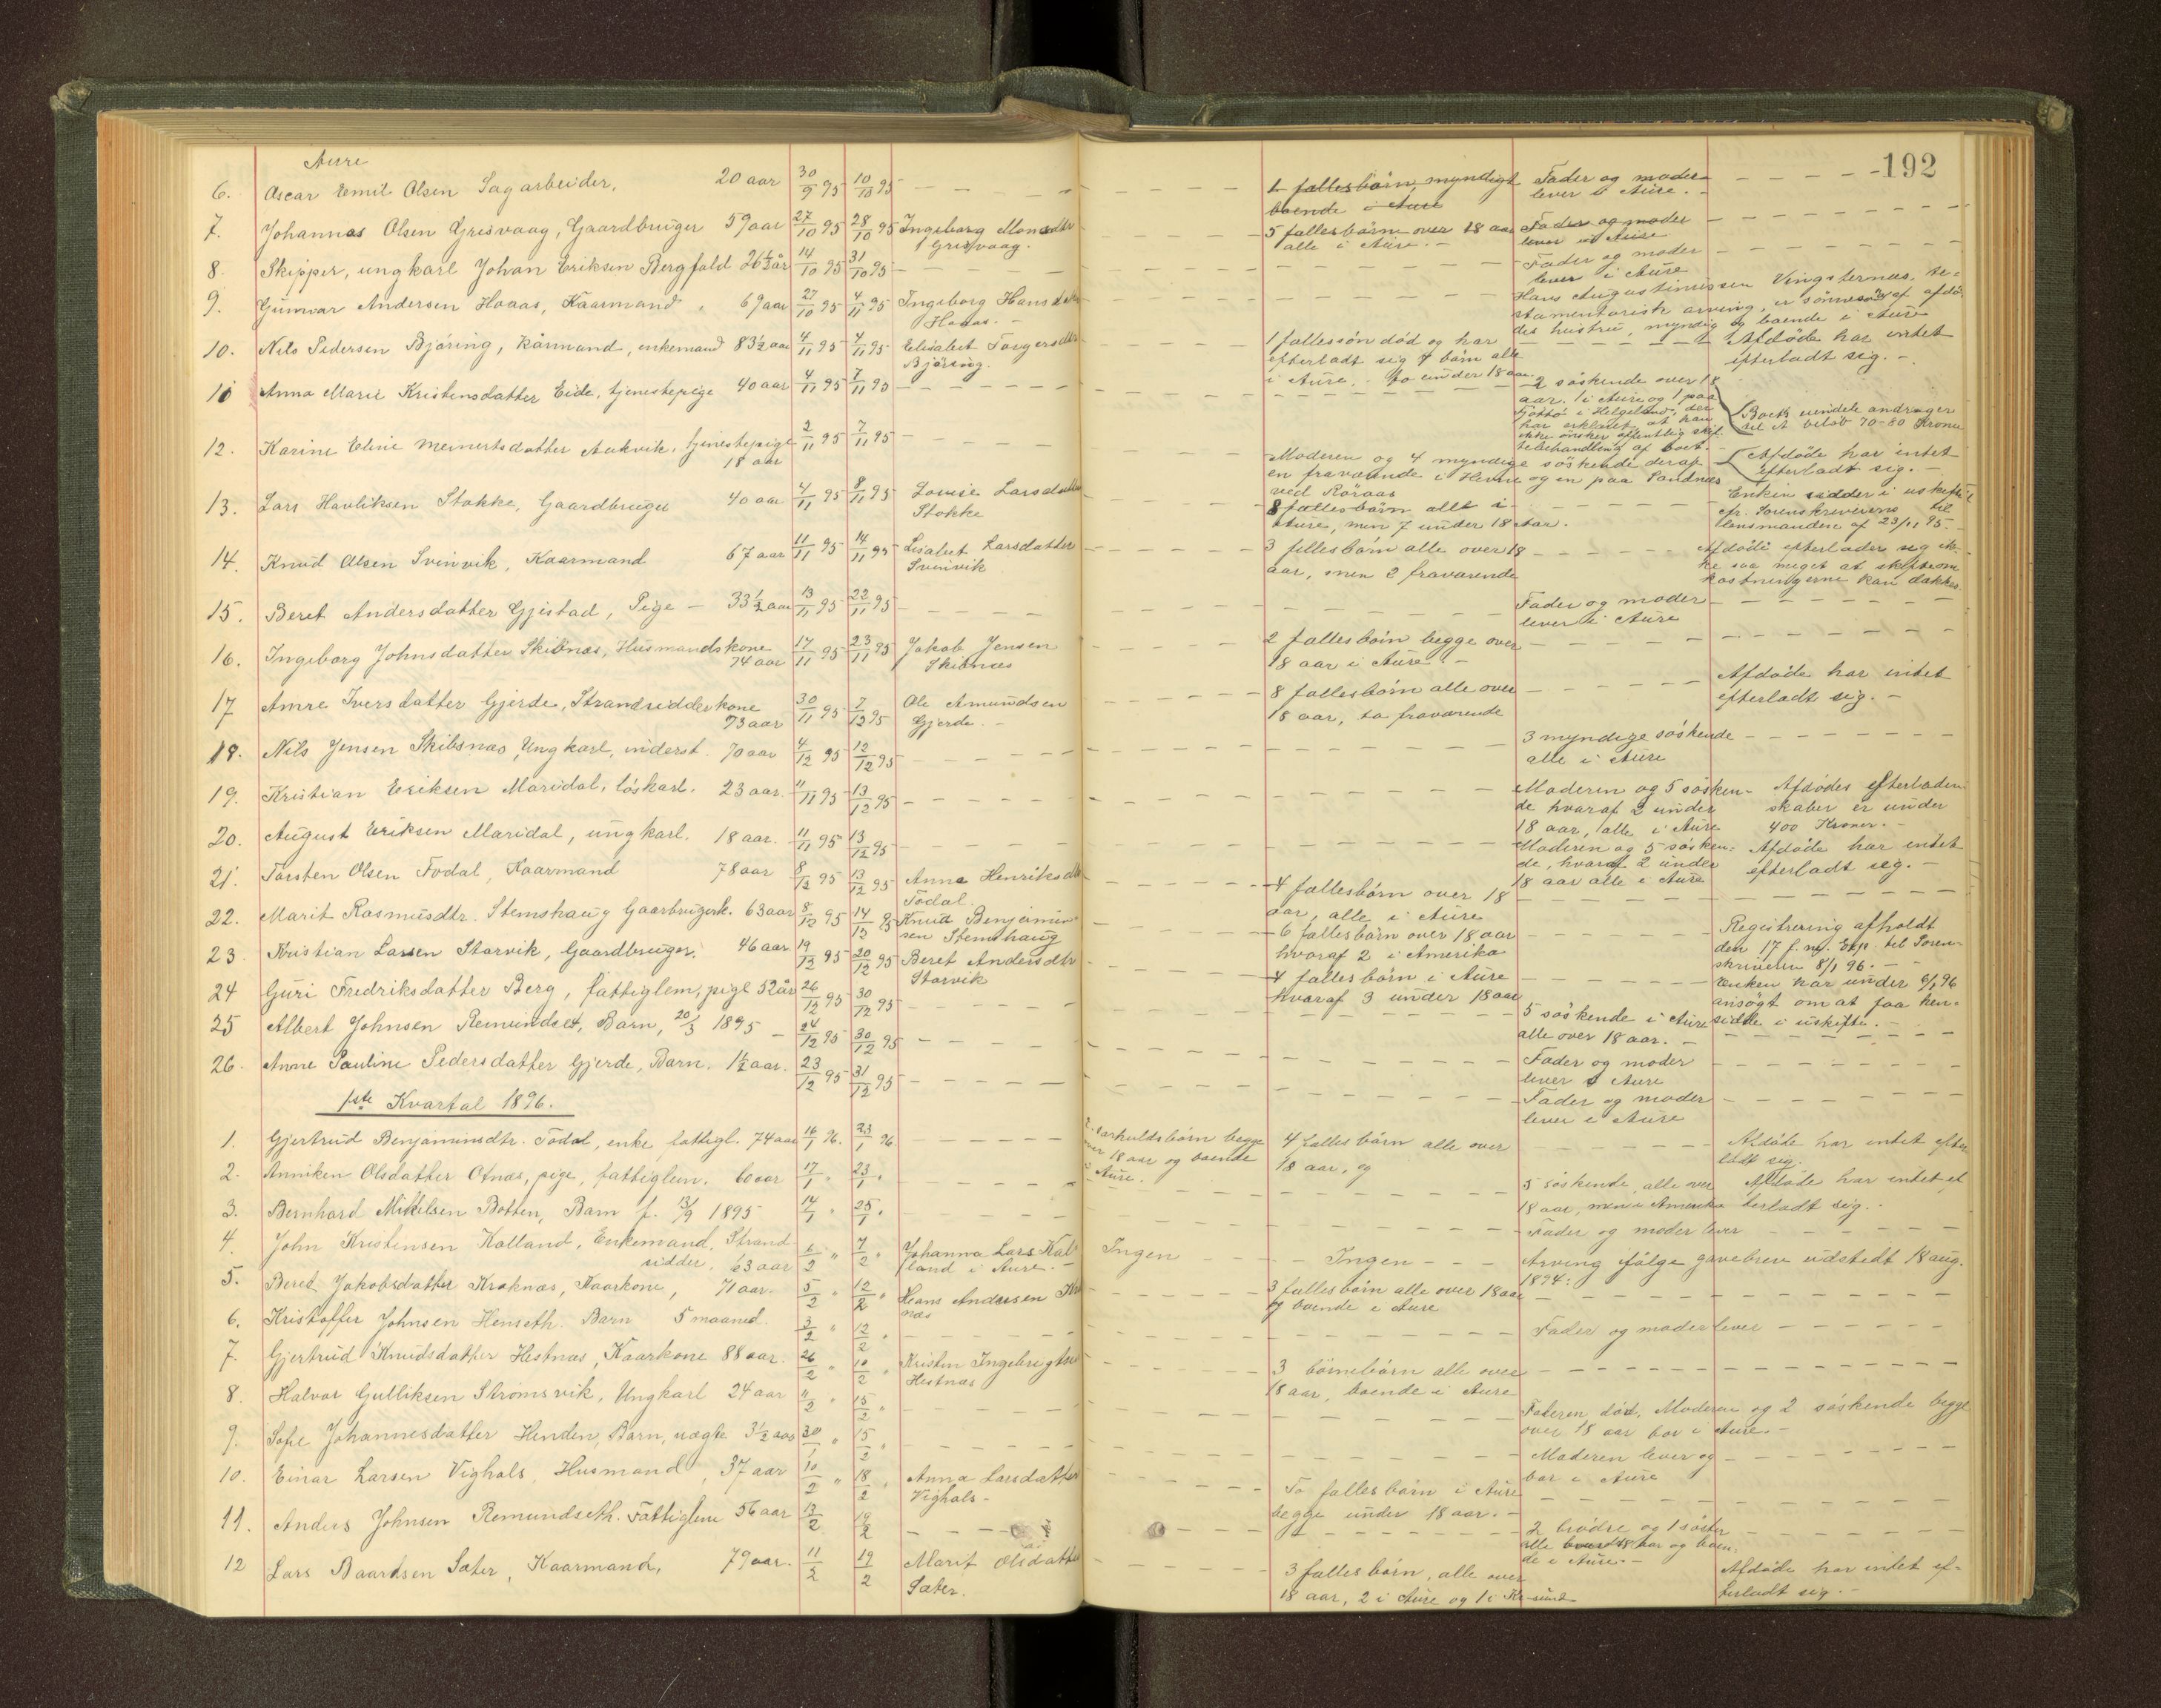 192
Aure
6. Oscar Emil Olsen Sagarbeider, 20 aar 30/9 95 10/10 95 — — — 1 fællesbörn, myndigt Fader og moder — — —
boende i Aure lever i Aure. -
7. Johannes Olsen Grisvaag, Gaardbruger 59 aar 27/10 95 28/10 95 Ingeborg Monsdtr — — 5 fællesbörn over 18 aar Fader og moder — — —
Grisvaag. alle i Aure. - lever i Aure
8. Skipper, ungkarl Johan Eriksen Bergfald 26½ år 14/10 95 31/10 95 — — — Fader og moder — — —
lever i Aure
9. Gunnar Andersen Hoaas, Kaarmand, 69 aar 27/10 95 4/11 95 Ingeborg Hansdtr — — — Hans Augustinussen Vingsternes, te=
Hoaas. - stamentarisk arving, er sönnesön af afdö
des hustru, myndig og boende i Aure
10. Nils Pedersen Björing, kårmand, enkemand 83½ aar 4/11 95 4/11 95 Elisabet Torgersdtr 1 fællessön död og har — — — Afdöde har intet
Björing. efterladt sig 4 börn alle efterladt sig. -
i Aure. - to under 18 aar.
11 Anna Marie Kristensdatter Eide, tjenestepige 40 aar 4/11 95 7/11 95 — — — 2 söskende over 18
aar. 1 i Aure og 1 paa
Tjöttö i Helgeland, der Boets midde andrager
har erklæret, at han til et belöb 70-80 Kroner
ikke önsker offentlig skif-
tebehandling af boet. -
12. Karine Eline Meinertsdatter Aukvik, tjenestepige 2/11 95 7/11 95 — — — Moderen og 4 myndige söskende deraf Afdöde har intet
18 aar en fraværende i Hemne og en paa Sandnes efterladt sig. -
ved Röraas
13. Lars Havliksen Stokke, Gaardbruger 40 aar 4/11 95 8/11 95 Lovise Larsdatter 8 fællesbörn allt i Enken sidder i uskiftet
Stokke Aure, men 7 under 18 aar. cfr. Sorenskriverens til
lensmanden af 23/11 95. -
14. Knud Olsen Svinvik, Kaarmand 67 aar 11/11 95 14/11 95 Lisabet Larsdatter — — 3 fellesbörn alle over 18 — — — Afdöde efterlader sig ik-
Svinvik aar, men 2 fraværende ke saa meget at skifteom
kostningerne kan dækkes
15. Beret Andersdatter Gjistad, Pige — 33½ aar 13/11 95 22/11 95 — — — Fader og moder — — —
lever i Aure
16. Ingeborg Johnsdatter Skibnæs, Husmandskone 17/11 95 23/11 95 Jakob Jensen — — 2 fællesbörn begge over — — —
74 aar Skibnæs 18 aar i Aure. -
17 Amre Iversdatter Gjerde, Strandsidderkone 30/11 95 7/12 95 Ole Amundsen — — 8 fællesbörn alle over — — — Afdöde har intet
73 aar Gjerde. - 18 aar, to fraværende efterladt sig. -
18. Nils Jensen Skibsnæs, Ungkarl, inderst. 70 aar 4/12 95 12/12 95 — — — 3 myndige söskende — — —
alle i Aure
19. Kristian Eriksen Maridal, löskarl. 23 aar. 11/11 95 13/12 95 — — — Moderen og 5 sösken- Afdödes efterladen
de hvoraf 2 under skaber er under
18 aar, alle i Aure 400 Kroner. -
20. August Eriksen Maridal, ungkarl. 18 aar. 11/11 95 13/12 95 — — — Moderen og 5 sösken= Afdöde har intet
de, hvoraf 2 under efterladt sig. -
18 aar alle i Aure
21. Torsten Olsen Todal, Kaarmand 78 aar 8/12 95 13/12 95 Anna Henriksdtr — — 4 fællesbörn over 18 — — —
Todal. aar, alle i Aure
22. Marit Rasmusdtr. Stemshaug Gaarbrugerk. 63 aar 8/12 95 14/12 95 Knud Benjamin- — — 6 fællesbörn over 18 aar — — — Registrering afholdt
sen Stemshaug hvoraf 2 i Amerika den 17 f. m. Exp. til Soren-
skriveren 8/1 96. -
23. Kristian Larsen Storvik, Gaardbruger. 46 aar 19/12 95 20/12 95 Beret Andersdtr — — 4 fællesbörn i Aure — — — Enken har under 6/1 96
Storvik hvoraf 3 under 18 aar ansögt om at faa hen-
sidde i uskifte. -
24 Guri Fredriksdatter Berg, fattiglem, pige 52 år 26/12 95 30/12 95 — — — 5 söskende i Aure
alle over 18 aar. -
25 Albert Johnsen Remundset, Barn, 20/3 1895 — 24/12 95 30/12 95 — — — Fader og moder — — —
lever i Aure
26. Anne Pauline Pedersdatter Gjerde, Barn. 1½ aar. 23/12 95 31/12 95 — — — Fader og moder — — —
lever i Aure
1ste Kvartal 1896.
1. Gjertrud Benjaminsdtr. Todal, enke fattigl. 74 aar 16/1 96. 23/1 96 — — — særkuldsbörn begge 4 fælles börn alle over — — — Afdöde har intet efter
over 18 aar og boende 18 aar, og ladt sig.
i Aure.
2. Anniken Olsdatter Otnæs, pige, fattiglem. 60 aar 17/1 " 23/1 " — — — 5 söskende, alle over Afdöde har intet ef
18 aar, men i Amerika terladt sig. -
3. Bernhard Mikkelsen Botten, Barn f. 13/9 1895 14/1 " 25/1 " — — — Fader og moder lever — — —
4. John Kristensen Kalland, Enkemand, Strand- 6/2 " 7/2 " Johanna Lars Kal- Ingen — — Ingen — — Arving ifölge gavebrev udstedt 18 aug.
sidder. 63 aar land i Aure. - 1894.
5. Bered Jakobsdatter Kroknæs, Kaarkone, 71 aar. 5/2 " 12/2 " Hans Andersen Kro — — 3 fælles börn alle over 18 aar — — —
næs og boende i Aure
6. Kristoffer Johnsen Henseth. Barn 5 maaned. 3/2 " 12/2 " — — — Fader og moder lever — — —
7. Gjertrud Knudsdatter Hestnæs, Kaarkone 88 aar. 26/2 " 10/2 " Kristen Ingebrigtsen — — 3 börnebörn alle over — — —
Hestnæs 18 aar, boende i Aure
8. Halvor Gulliksen Strömsvik, Ungkarl 24 aar 11/2 " 15/2 " — — — Faderen död, Moderen og 2 söskende begge
over 18 aar bor i Aure. -
9. Sofie Johannesdatter Henden, Barn, uægte 3½ aar 30/1 " 15/2 " — — — Moderen lever og — — —
bor i Aure
10. Einar Larsen Vighals, Husmand, 37 aar 10/2 " 18/2 " Anna Larsdatter To fælles börn i Aure — — —
Vighals- begge under 18 aar. -
11. Anders Johnsen Remundseth. Fattiglem 56 aar 13/2 19/2 — — — 2 brödre og 1 söster — — —
alle over 18 aar og boen-
de i Aure. -
12 Lars Baardsen Sæter, Kaarmand, 79 aar. 11/2 19/2 Marit Olsdatter 3 fælles börn, alle over Afdöde har intet ef-
Sæter. 18 aar, 2 i Aure og 1 i Kr-sund terladt sig. -